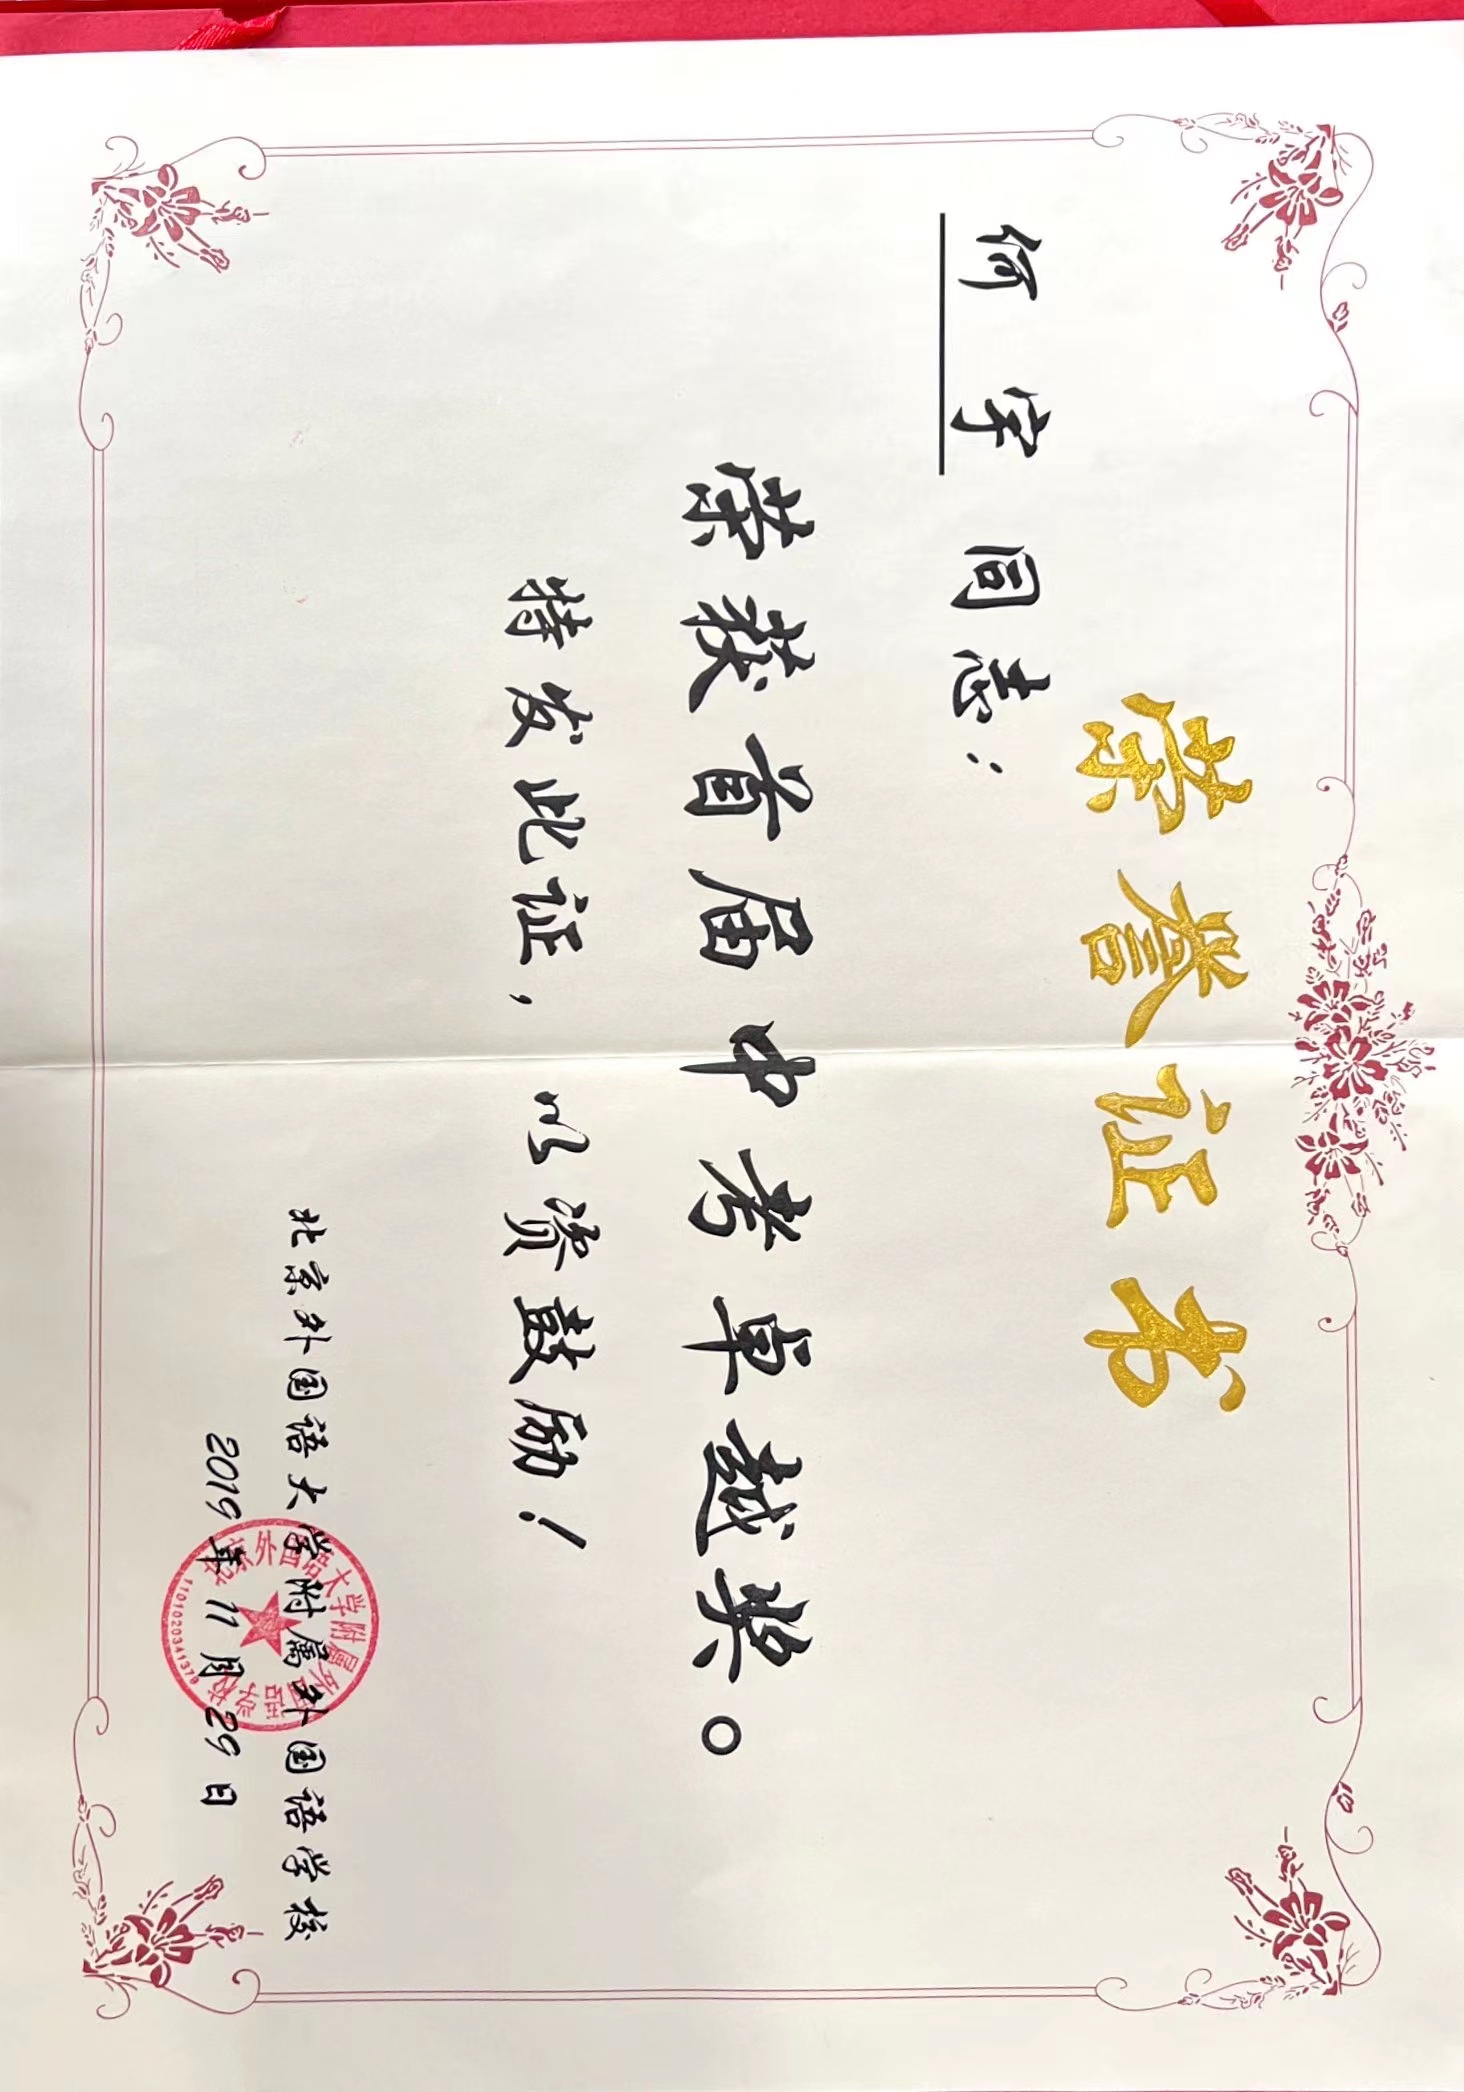 荣誉证书
何宇同志：
荣获首届中考卓越奖。
特发此证，以资鼓励！
北京外国语大学附属外国语学校
2019年11月29日
北京外国语大学附属外国语学校
1101020341378